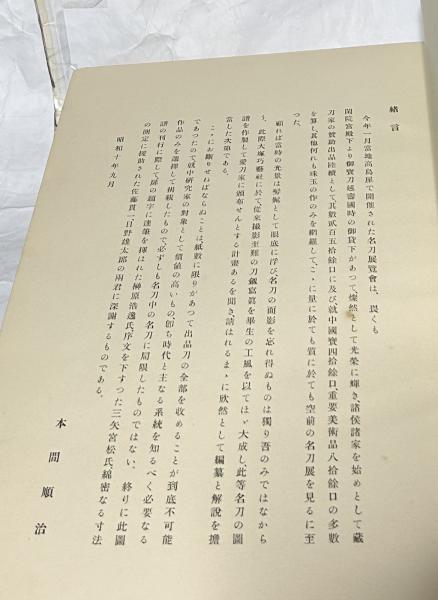 緒言
今年一月當地高島屋で開催された名刀展覽會は、畏くも
閑院宮殿下より御寶刀越審國時の御貸下があつて、燦然として光榮に輝き、諸侯諸家を始めとして藏
刀家の贊助出品陸續として、其數貳百五拾餘口に及び、就中國寶四拾餘口、重要美術品八拾餘口の多數
を算し、其他何れも珠玉の作のみを網羅して、こゝに量に於ても質に於ても空前の名刀展を見るに至
つた。
顧れば當時の光景は髣髴として眼底に浮び、名刀の面影を忘れ得ぬものは獨り吾のみではなから
う。此際大塚巧藝社に於て、從來撮影至難の刀劍寫眞を畢生の工風を以てほゞ大成し、此等名刀の圖
譜を作製して愛刀家に頒布せんとする計畫あるを聞き、請はれるまゝに欣然として編纂と解說を擔
當した次第である。
こゝにお斷りせねばならぬことは、紙數に限りがあつて出品刀の全部を收めることが到底不可能
であつたので就中硏究家の對象として價値の高いもの、卽ち時代と主なる系統を知るべく必要なる
作品のみを選擇して掲載したもので、必ずしも名刀中の名刀に局限したものではない。終りに此圖
譜の刊行に際して扉の題字に達筆を揮はれた榊原浩逸氏、序文を下すつた三矢宮松氏、綿密なる寸法
の測定に援助された佐藤貫一、日野雄太郎の兩君に深謝するものである。
昭和十年九月
本間順治